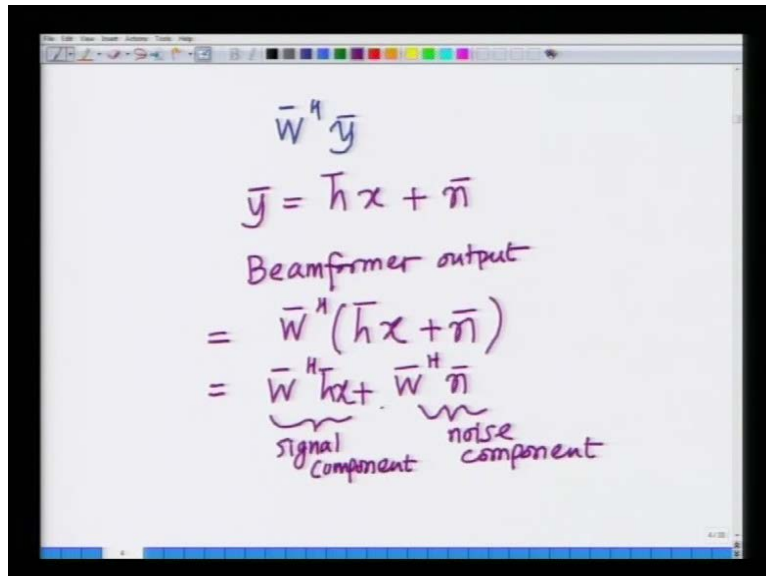 File Edit View Insert Actions Tools Help
w̄ᴴ ȳ
ȳ = h̄x + n̄
Beamformer output
= w̄ᴴ(h̄x + n̄)
= w̄ᴴh̄x + w̄ᴴn̄
signal component
noise component
4